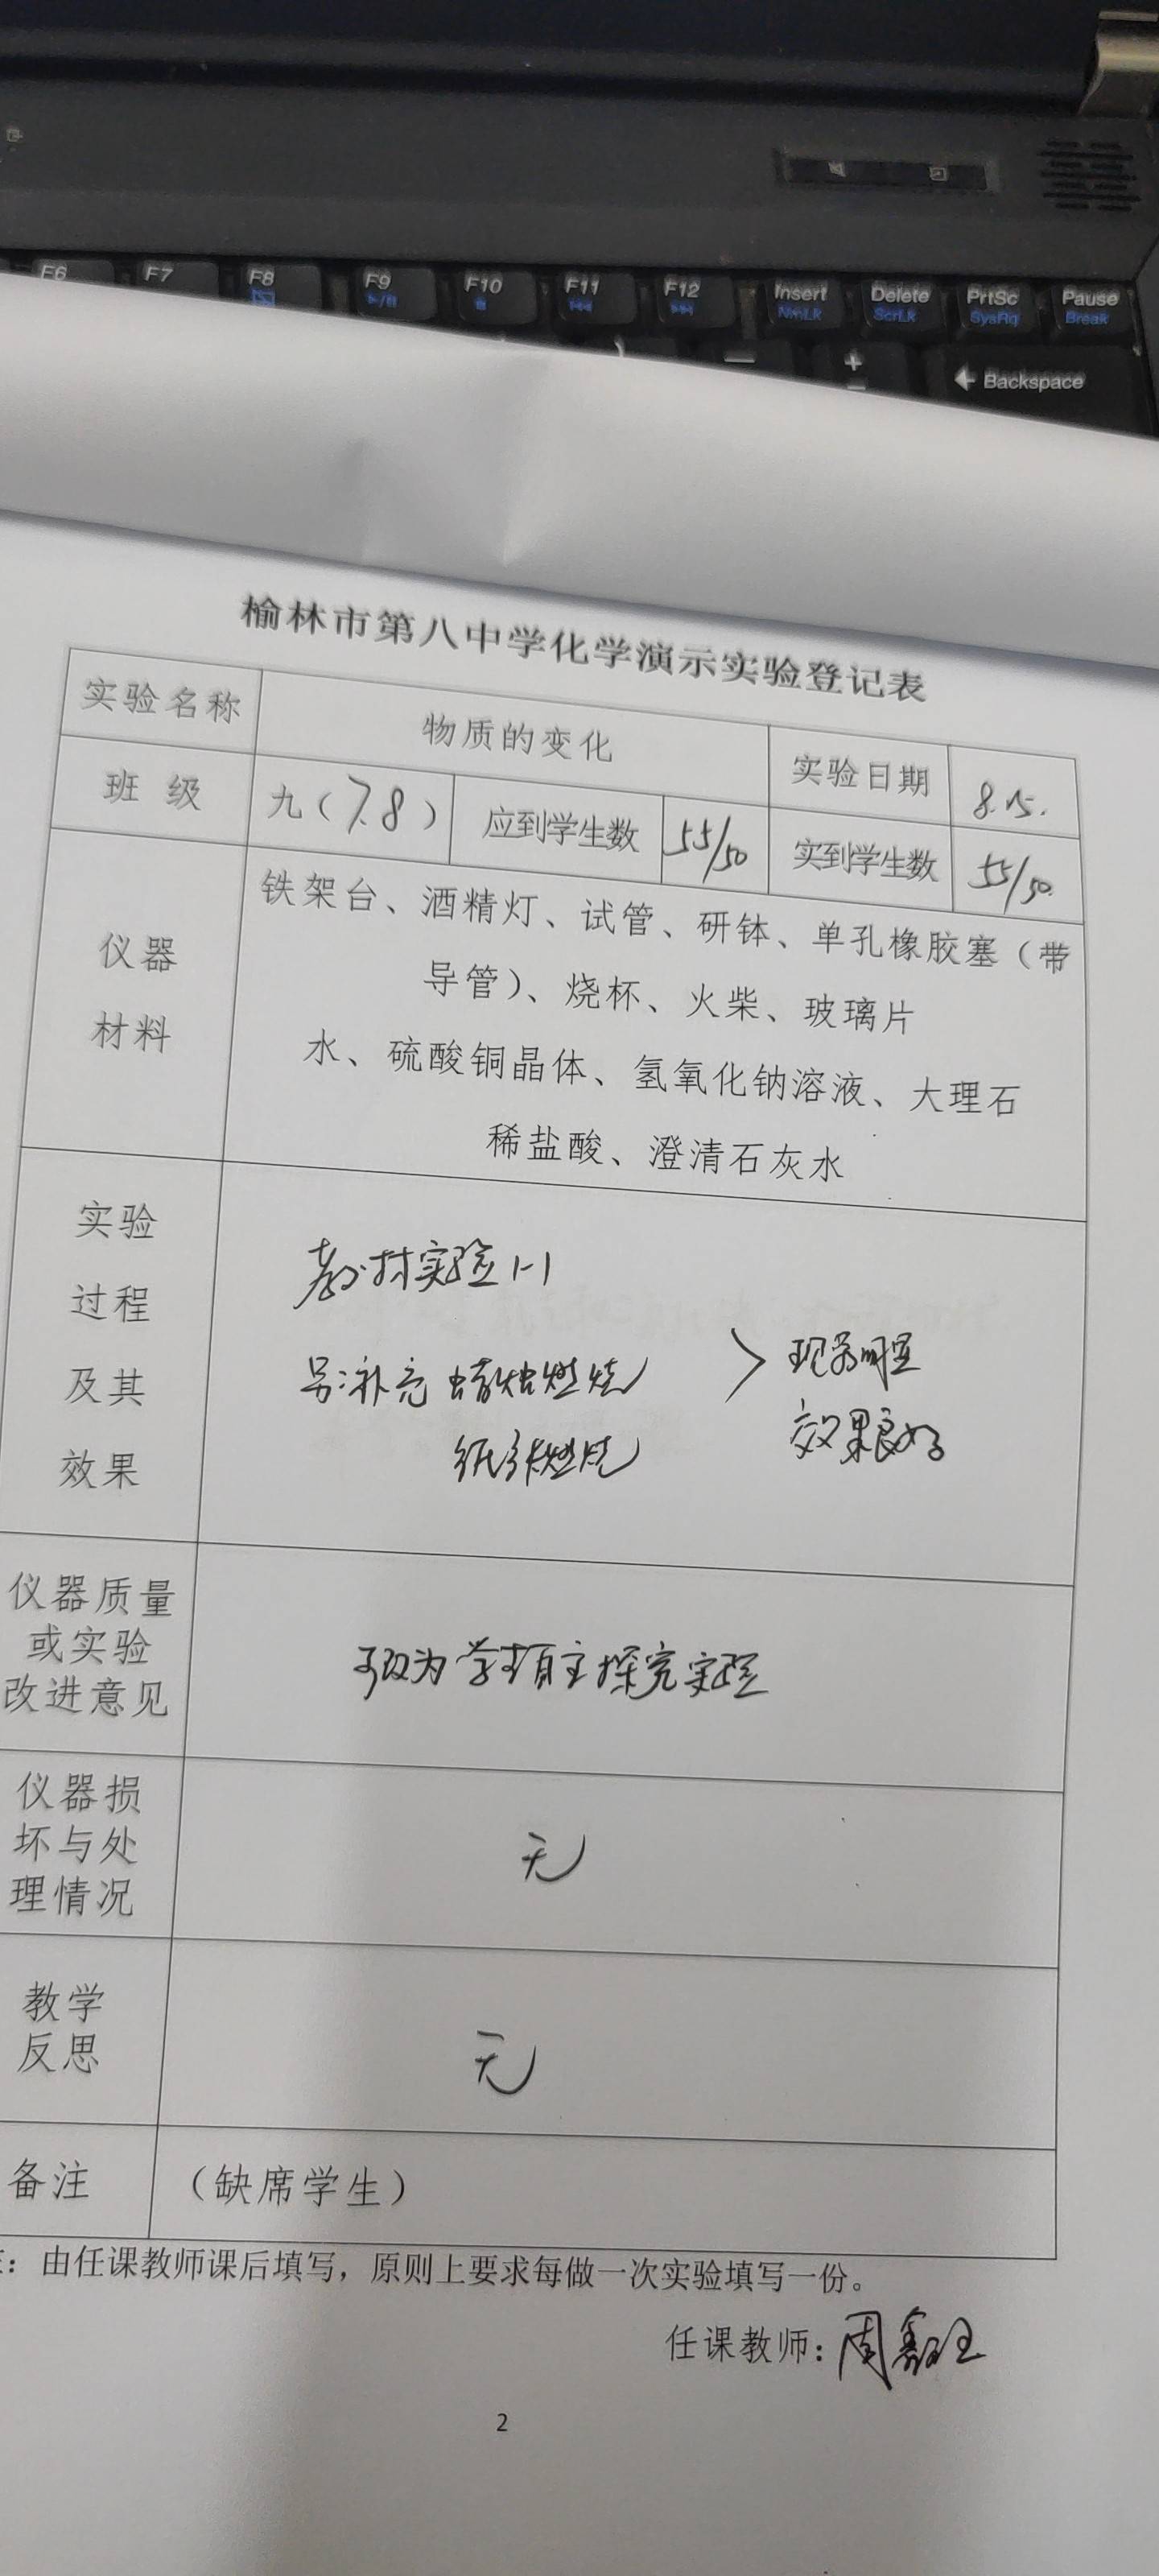 F6 F7 F8 F9 F10 F11 F12 Insert Delete PrtSc Pause
NmLk ScrLk SysRq Break
Backspace
榆林市第八中学化学演示实验登记表
实验名称 物质的变化 实验日期 8.15.
班 级 九（7.8） 应到学生数 55/50 实到学生数 55/50.
仪器
材料
铁架台、酒精灯、试管、研钵、单孔橡胶塞（带
导管）、烧杯、火柴、玻璃片
水、硫酸铜晶体、氢氧化钠溶液、大理石
稀盐酸、澄清石灰水
实验
过程
及其
效果
教材实验1-1
另:补充 蜡烛燃烧
纸张燃烧
现象明显
效果良好
仪器质量
或实验
改进意见
可改为学生自主探究实验
仪器损
坏与处
理情况
无
教学
反思
无
备注 （缺席学生）
：由任课教师课后填写，原则上要求每做一次实验填写一份。
任课教师：周
2